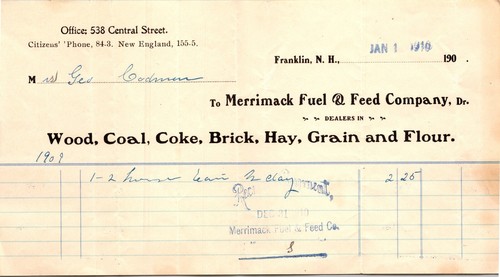 Office: 538 Central Street.
Citizens' 'Phone, 84-3. New England, 155-5.
JAN 1 1910
Franklin, N. H., 190 .
M rs Geo Codman
To Merrimack Fuel & Feed Company, Dr.
DEALERS IN
Wood, Coal, Coke, Brick, Hay, Grain and Flour.
1909
1-2 horse team ½ day 2 25
DEC 31
Merrimack Fuel & Feed Co.